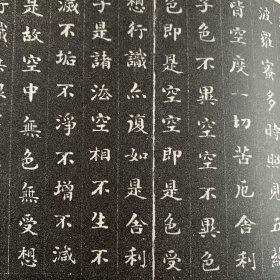 波羅蜜多時照見五蘊
皆空度一切苦厄舍利
子色不異空空不異色
色即是空空即是色受
想行識亦復如是舍利
子是諸法空相不生不
滅不垢不淨不增不減
是故空中無色無受想
行識無